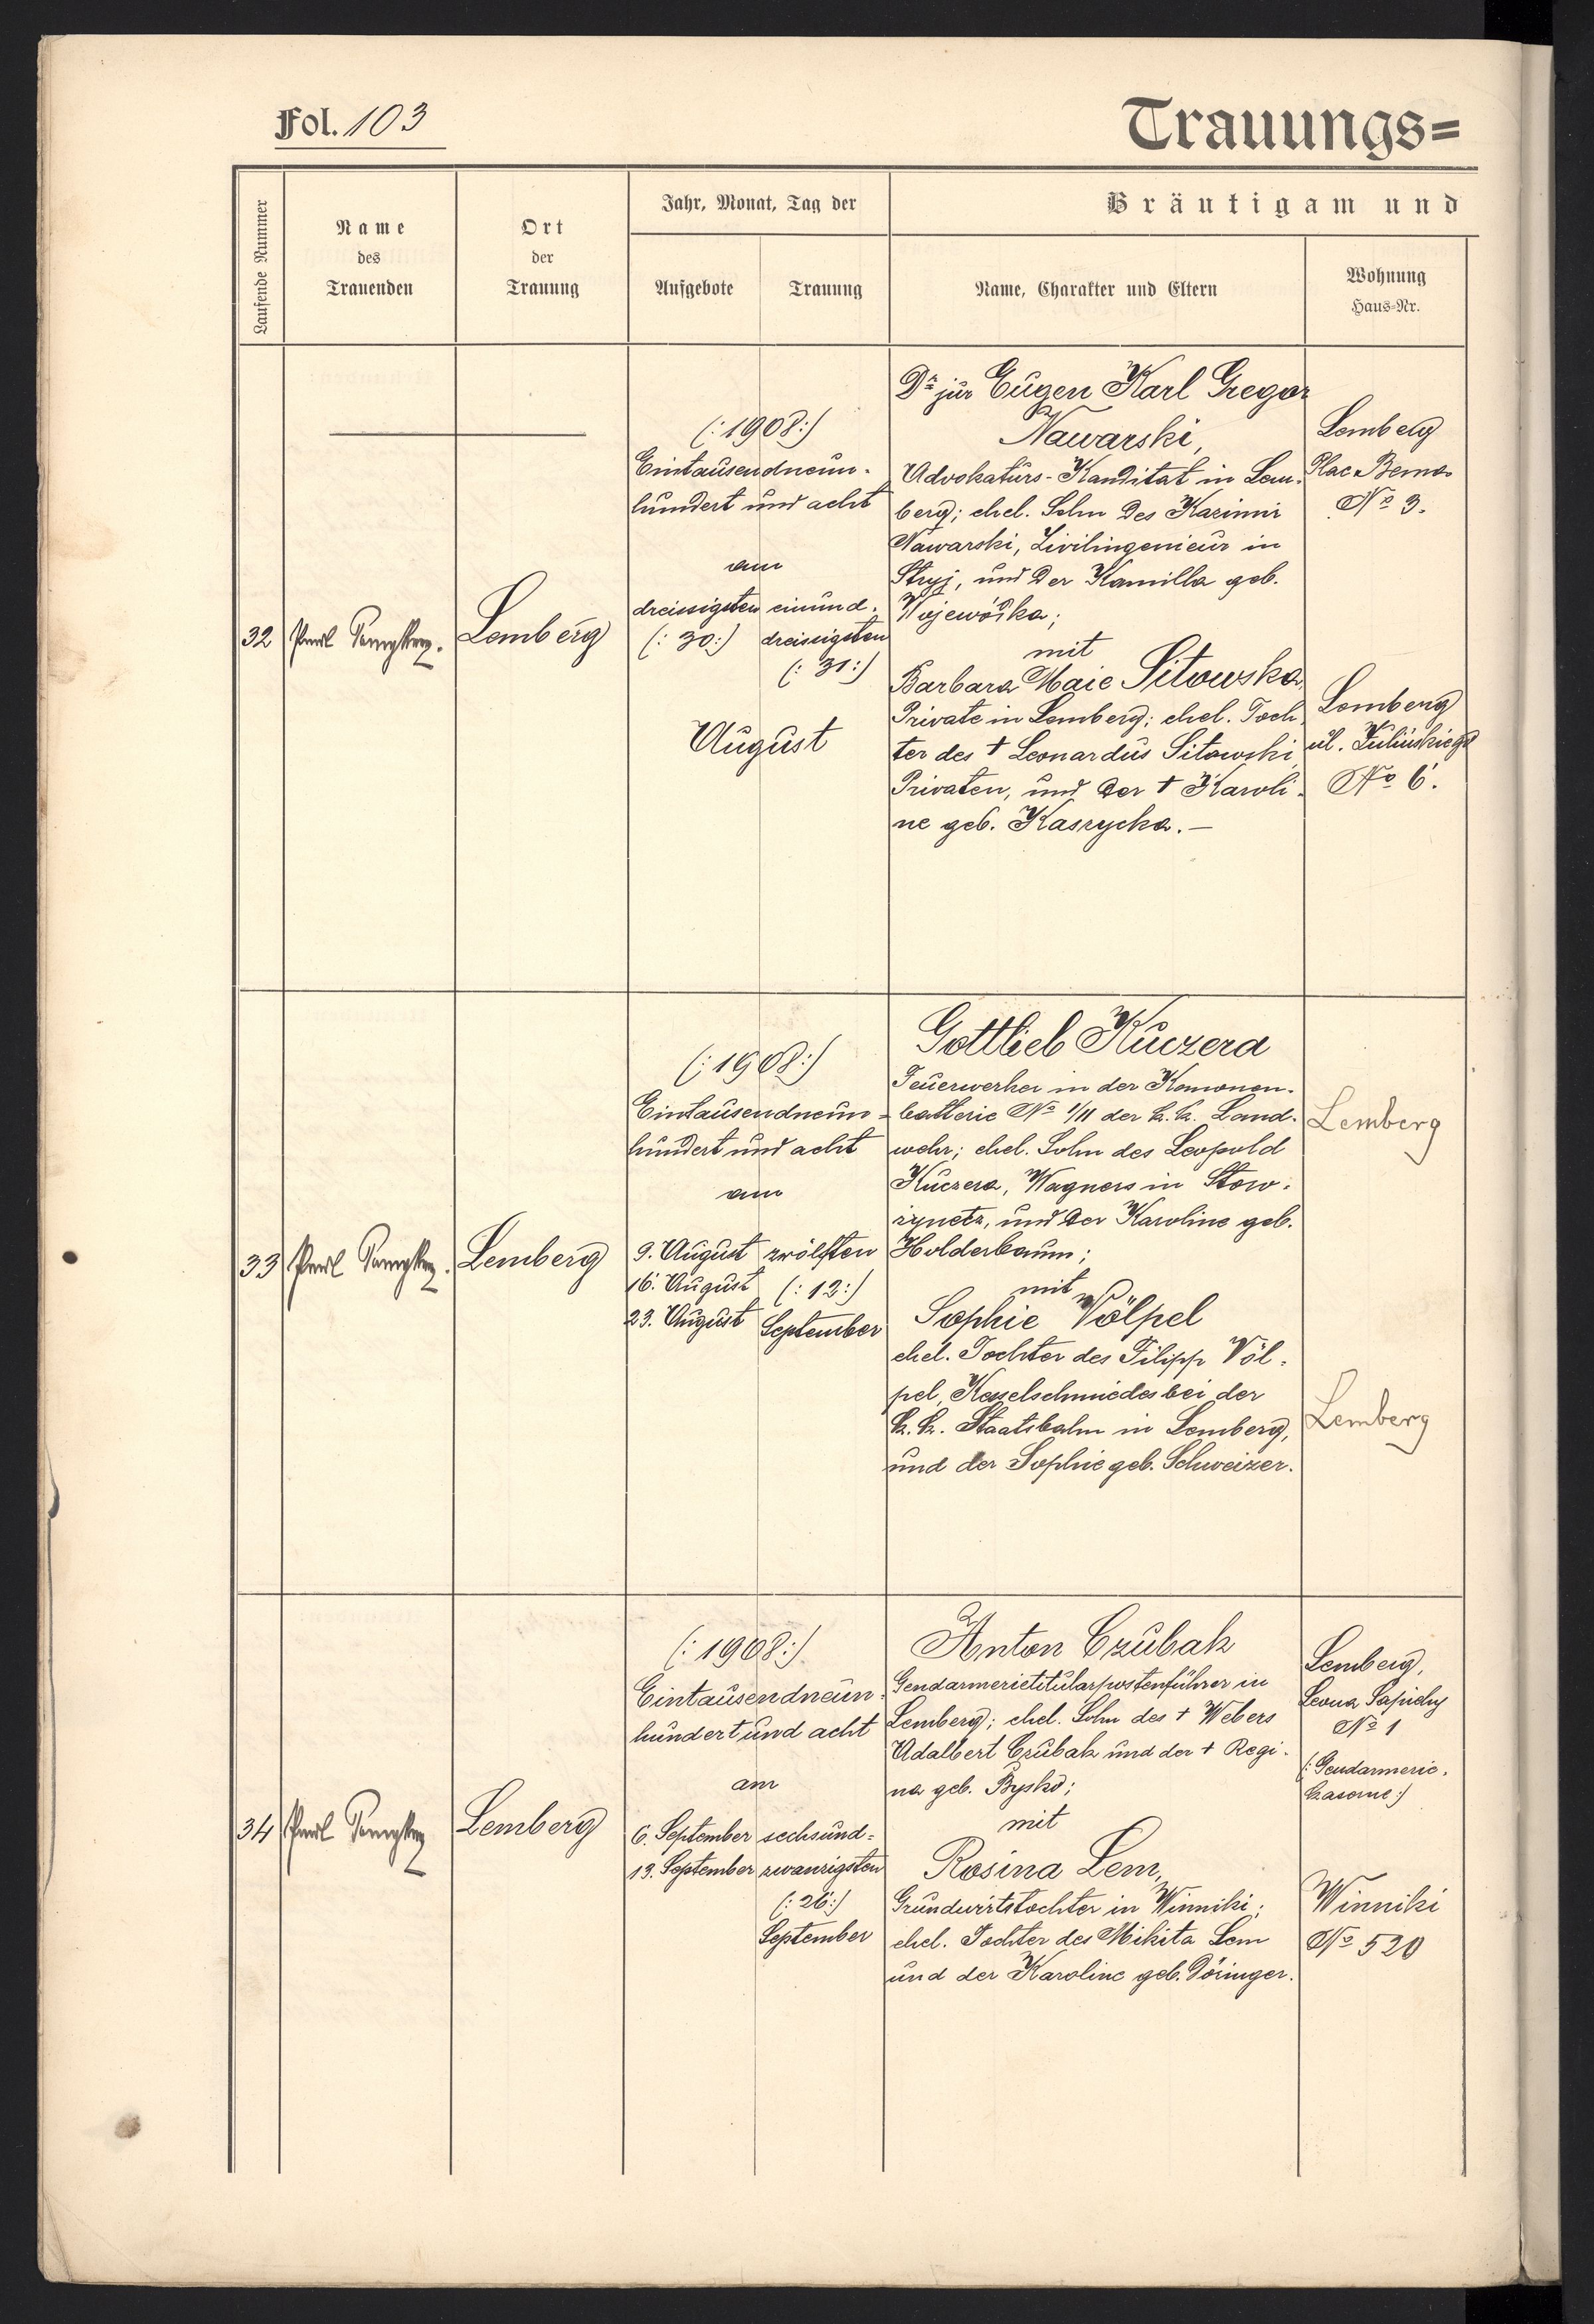 Fol. 103
Trauungs=
Laufende Nummer
Name
des
Trauenden
Ort
der
Trauung
Jahr, Monat, Tag der
Aufgebote
Trauung
Bräutigam und
Name, Charakter und Eltern
Wohnung
Haus=Nr.
32
Lemberg
(: 1908 :)
Eintausendneun-
hundert und acht
am
dreissigsten
(: 30 :)
einund-
dreissigsten
(: 31 :)
August
Dr jur Eugen Karl Gregor
Nawarski,
Advokaturs-Kanditat in Lem-
berg; ehel. Sohn des Kazimir
Nawarski, Zivilingenieur in
Stryj, und der Kamilla geb.
Wojewódka;
mit
Barbara Maie Sitowska,
Private in Lemberg; ehel. Toch
ter des † Leonardus Sitowski,
Privaten, und der † Karoli-
ne geb. Kasrycka. —
Lemberg
Plac Bema
No 3.
Lemberg
ul.
No 6.
33
Lemberg
(: 1908 :)
Eintausendneun-
hundert und acht
am
9. August
16. August
23. August
zwölften
(: 12 :)
September
Gottlieb Kuczera
Feuerwerker in der Kanonen-
batterie No 1/11 der k. k. Land-
wehr; ehel. Sohn des Leopold
Kuczera, Wagners in Stow-
rynetz, und der Karoline geb.
Holderbaum;
mit
Sophie Völpel
ehel. Tochter des Filipp Völ-
pel, Kesselschmiedes bei der
k. k. Staatsbahn in Lemberg,
und der Sophie geb. Schweizer.
Lemberg
Lemberg
34
Lemberg
(: 1908 :)
Eintausendneun-
hundert und acht
am
6. September
13. September
sechsund=
zwanzigsten
(: 26 :)
September
Anton Czubak
Gendarmerietitularpostenführer in
Lemberg; ehel. Sohn des † Webers
Adalbert Czubak und der † Regi-
na geb. Bysko;
mit
Rosina Lem,
Grundwirtstochter in Winniki;
ehel. Tochter des Mikita Lem
und der Karoline geb. Döringer.
Lemberg,
Leona Sapiehy
No 1
(: Gendarmerie-
kaserne :)
Winniki
No 520